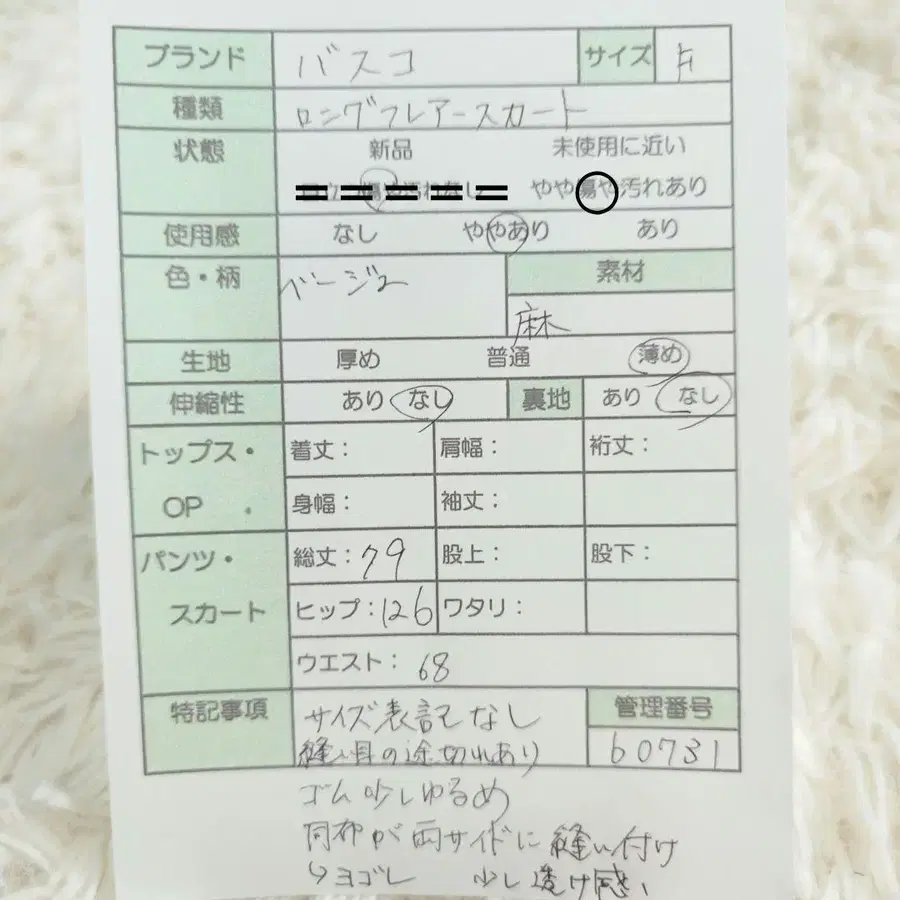 ブランド バスコ サイズ F
種類 ロングフレアースカート
状態 新品 未使用に近い
目立つ傷や汚れなし やや傷や汚れあり
使用感 なし ややあり あり
色・柄 ベージュ 素材
麻
生地 厚め 普通 薄め
伸縮性 あり なし 裏地 あり なし
トップス・ 着丈： 肩幅： 裄丈：
OP 身幅： 袖丈：
パンツ・ 総丈：79 股上： 股下：
スカート ヒップ：126 ワタリ：
ウエスト：68
特記事項 サイズ表記なし 管理番号
縫い目の途切れあり 60731
ゴム少しゆるめ
同布が両サイドに縫い付け
ヨゴレ 少し透け感